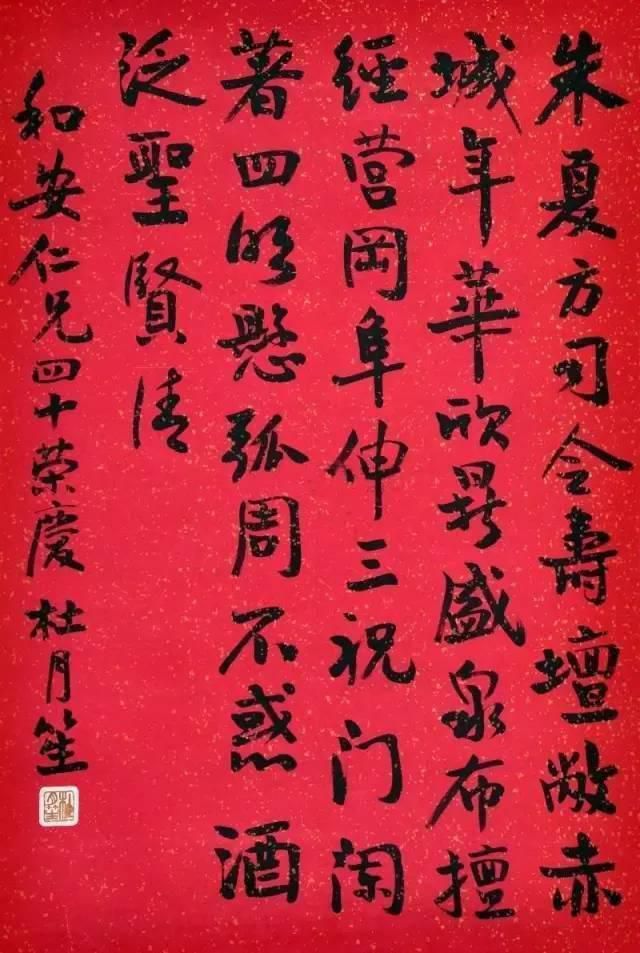 朱夏方司令壽壇敞赤
城年華欣鼎盛泉布擅
經营岡阜伸三祝门
著四明懸弧周不惑酒
泛聖賢清
和安仁兄四十荣慶 杜月笙